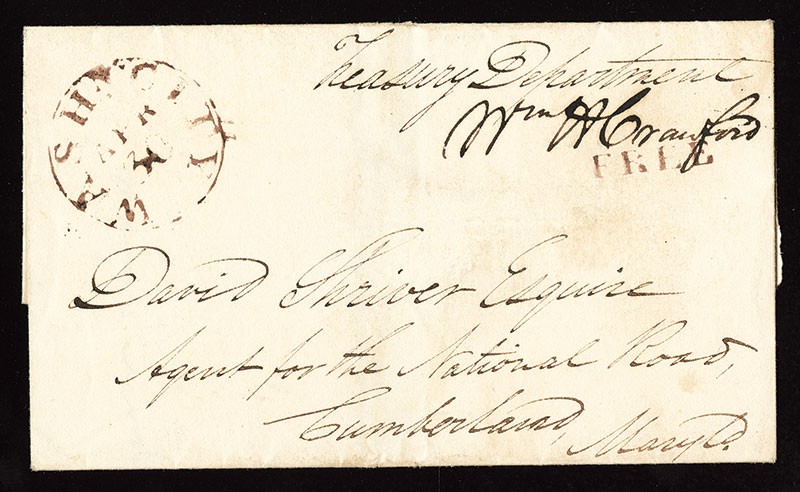 WASHN CITY
APR
Treasury Department
Wm H Crawford
FREE
David Shriver Esquire
Agent for the National Road,
Cumberland,
Maryld.